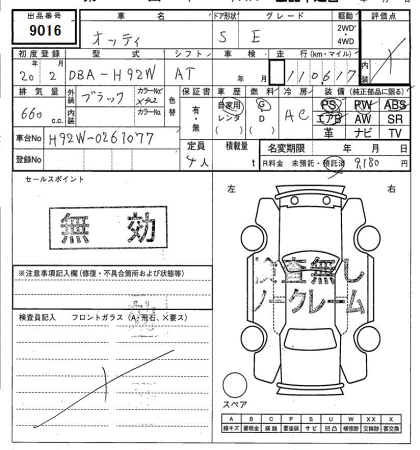 出品番号 車 名 ドア形状 グレード 駆動 評価点
9016 オッティ 5 E 2WD・4WD
初度登録 型 式 シフト 車 検 走 行(km・マイル) 内装
20年 2月 DBA-H92W AT 年 月
排気量 外装 カラーNo. 色替 保証書 車歴 燃料 冷房 装 備(純正部品に限る)
660 c.c. ブラック X42 有・無 自家用 レンタ ( ) G D ( ) AC PS PW ABS
内装 カラーNo. エアB AW SR
革 ナビ TV
車台No H92W-0261077 定員 積載量 名変期限 年 月 日
登録No 4人 t R料金 未預託・預託済 9,180 円
セールスポイント 左 右
無 効
検査無し
ノークレーム
※注意事項記入欄(修復・不具合箇所および状態等)
検査員記入 フロントガラス(A・飛石、×要ス)
スペア
A B C P S U W XX X
線キズ 要板金 腐蝕 要塗装 サビ 凹凸 補修跡 交換跡 要交換